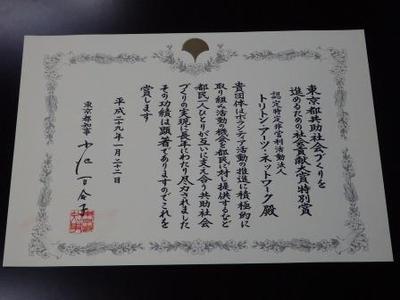 東京都共助社会づくりを
進めるための社会貢献大賞特別賞
認定特定非営利活動法人
トリトン・アーツ・ネットワーク殿
貴団体はボランティア活動の推進に積極的に
取り組み活動の機会を都民に対し提供するなど
都民一人ひとりが互いに支え合う共助社会
づくりの実現に長年にわたり尽力されました
その功績は顕著でありますのでこれを
賞します
平成二十九年一月二十二日
東京都知事 小池百合子